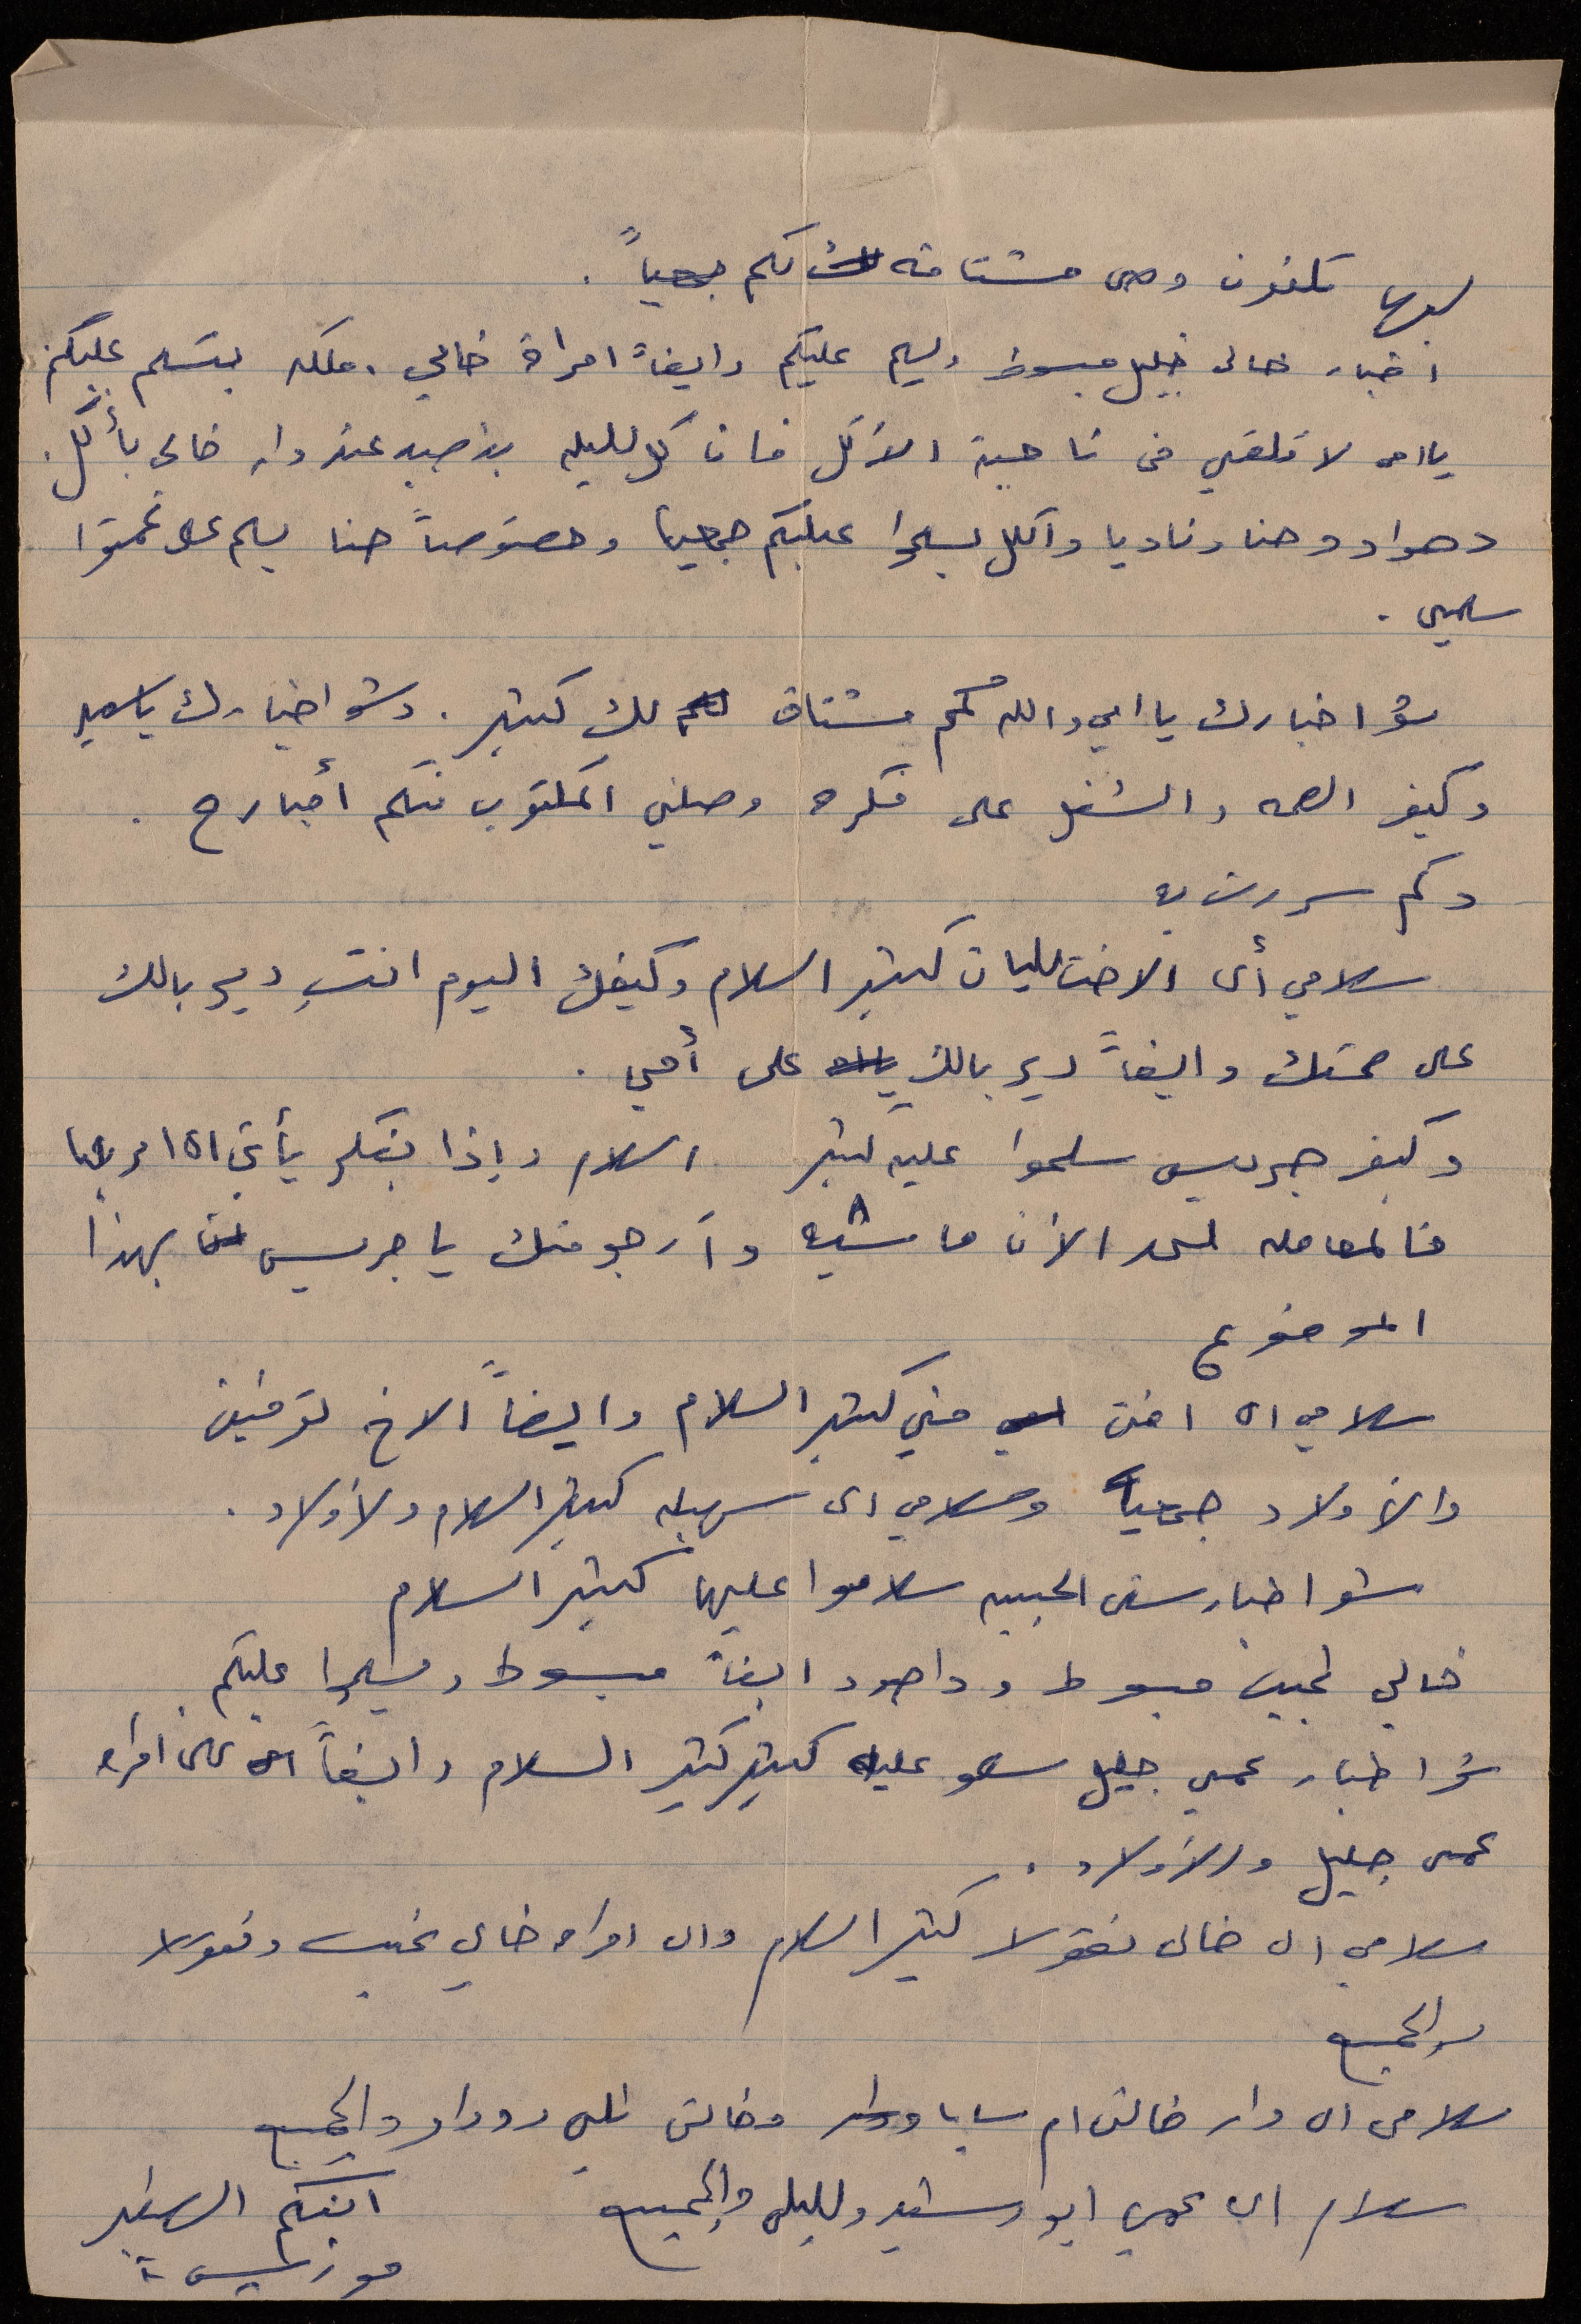 لبها تلفون وهي مشتاقه لكم جميعاً.
اخبار خالي خليل مبسوط ويسلم عليكم وايضاً امراة خالي. ملكه بتسلم عليكم
يا امي لا تقلقي من ناحية الأكل فان كل ليله بذهب عند دار خالي بأكل.
وحنا وناديا والكل يسلموا عليكم جميعاً وخصوصاً حنا يسلم على عمتوا
سلمى.
شو اخبارك يا ابي والله كم مشتاق لك كتير. وشو اخبارك يا
وكيف الصحه والشغل على فكره وصلني المكتوب منكم أمبارح.
وكم سررت به
سلامي ألى الاخت ليليان كتير السلام وكيفك اليوم انتِ ديري بالك
على صحتك وايضاً ديري بالك على أمي.
وكيف جريس سلموا عليه كتير السلام وإذا بفكر يأتي الى امريكا
فالمعامله لحد الآن ماشيه وأرجو منك يا جريس بهذا
الموضوع
سلامي الى اختي مني كتير السلام وايضاً الاخ توفيق
والأولاد جميعاً وسلامي الى سهيله كتير السلام والأولاد.
شو اخبار ستي الحبيبه سلاموا عليها كتير السلام
خالي نجيب مبسوط وداهود ايضاً مبسوط ويسلموا عليكم.
شو اخبار عمي جليل سلمو عليه كتير كتير السلام وايضاً على امراه
عمي جليل والأولاد.
سلامي الى خالي نقولا كتير السلام والى امراه خالي نجيب ونقولا
والجميع
سلامي الى دار خالتي ام سابا وخالتي نلي ودوداو والجميع
سلام الى عمي ابو رشيد وليلى والجميع
ابنكم
موريس